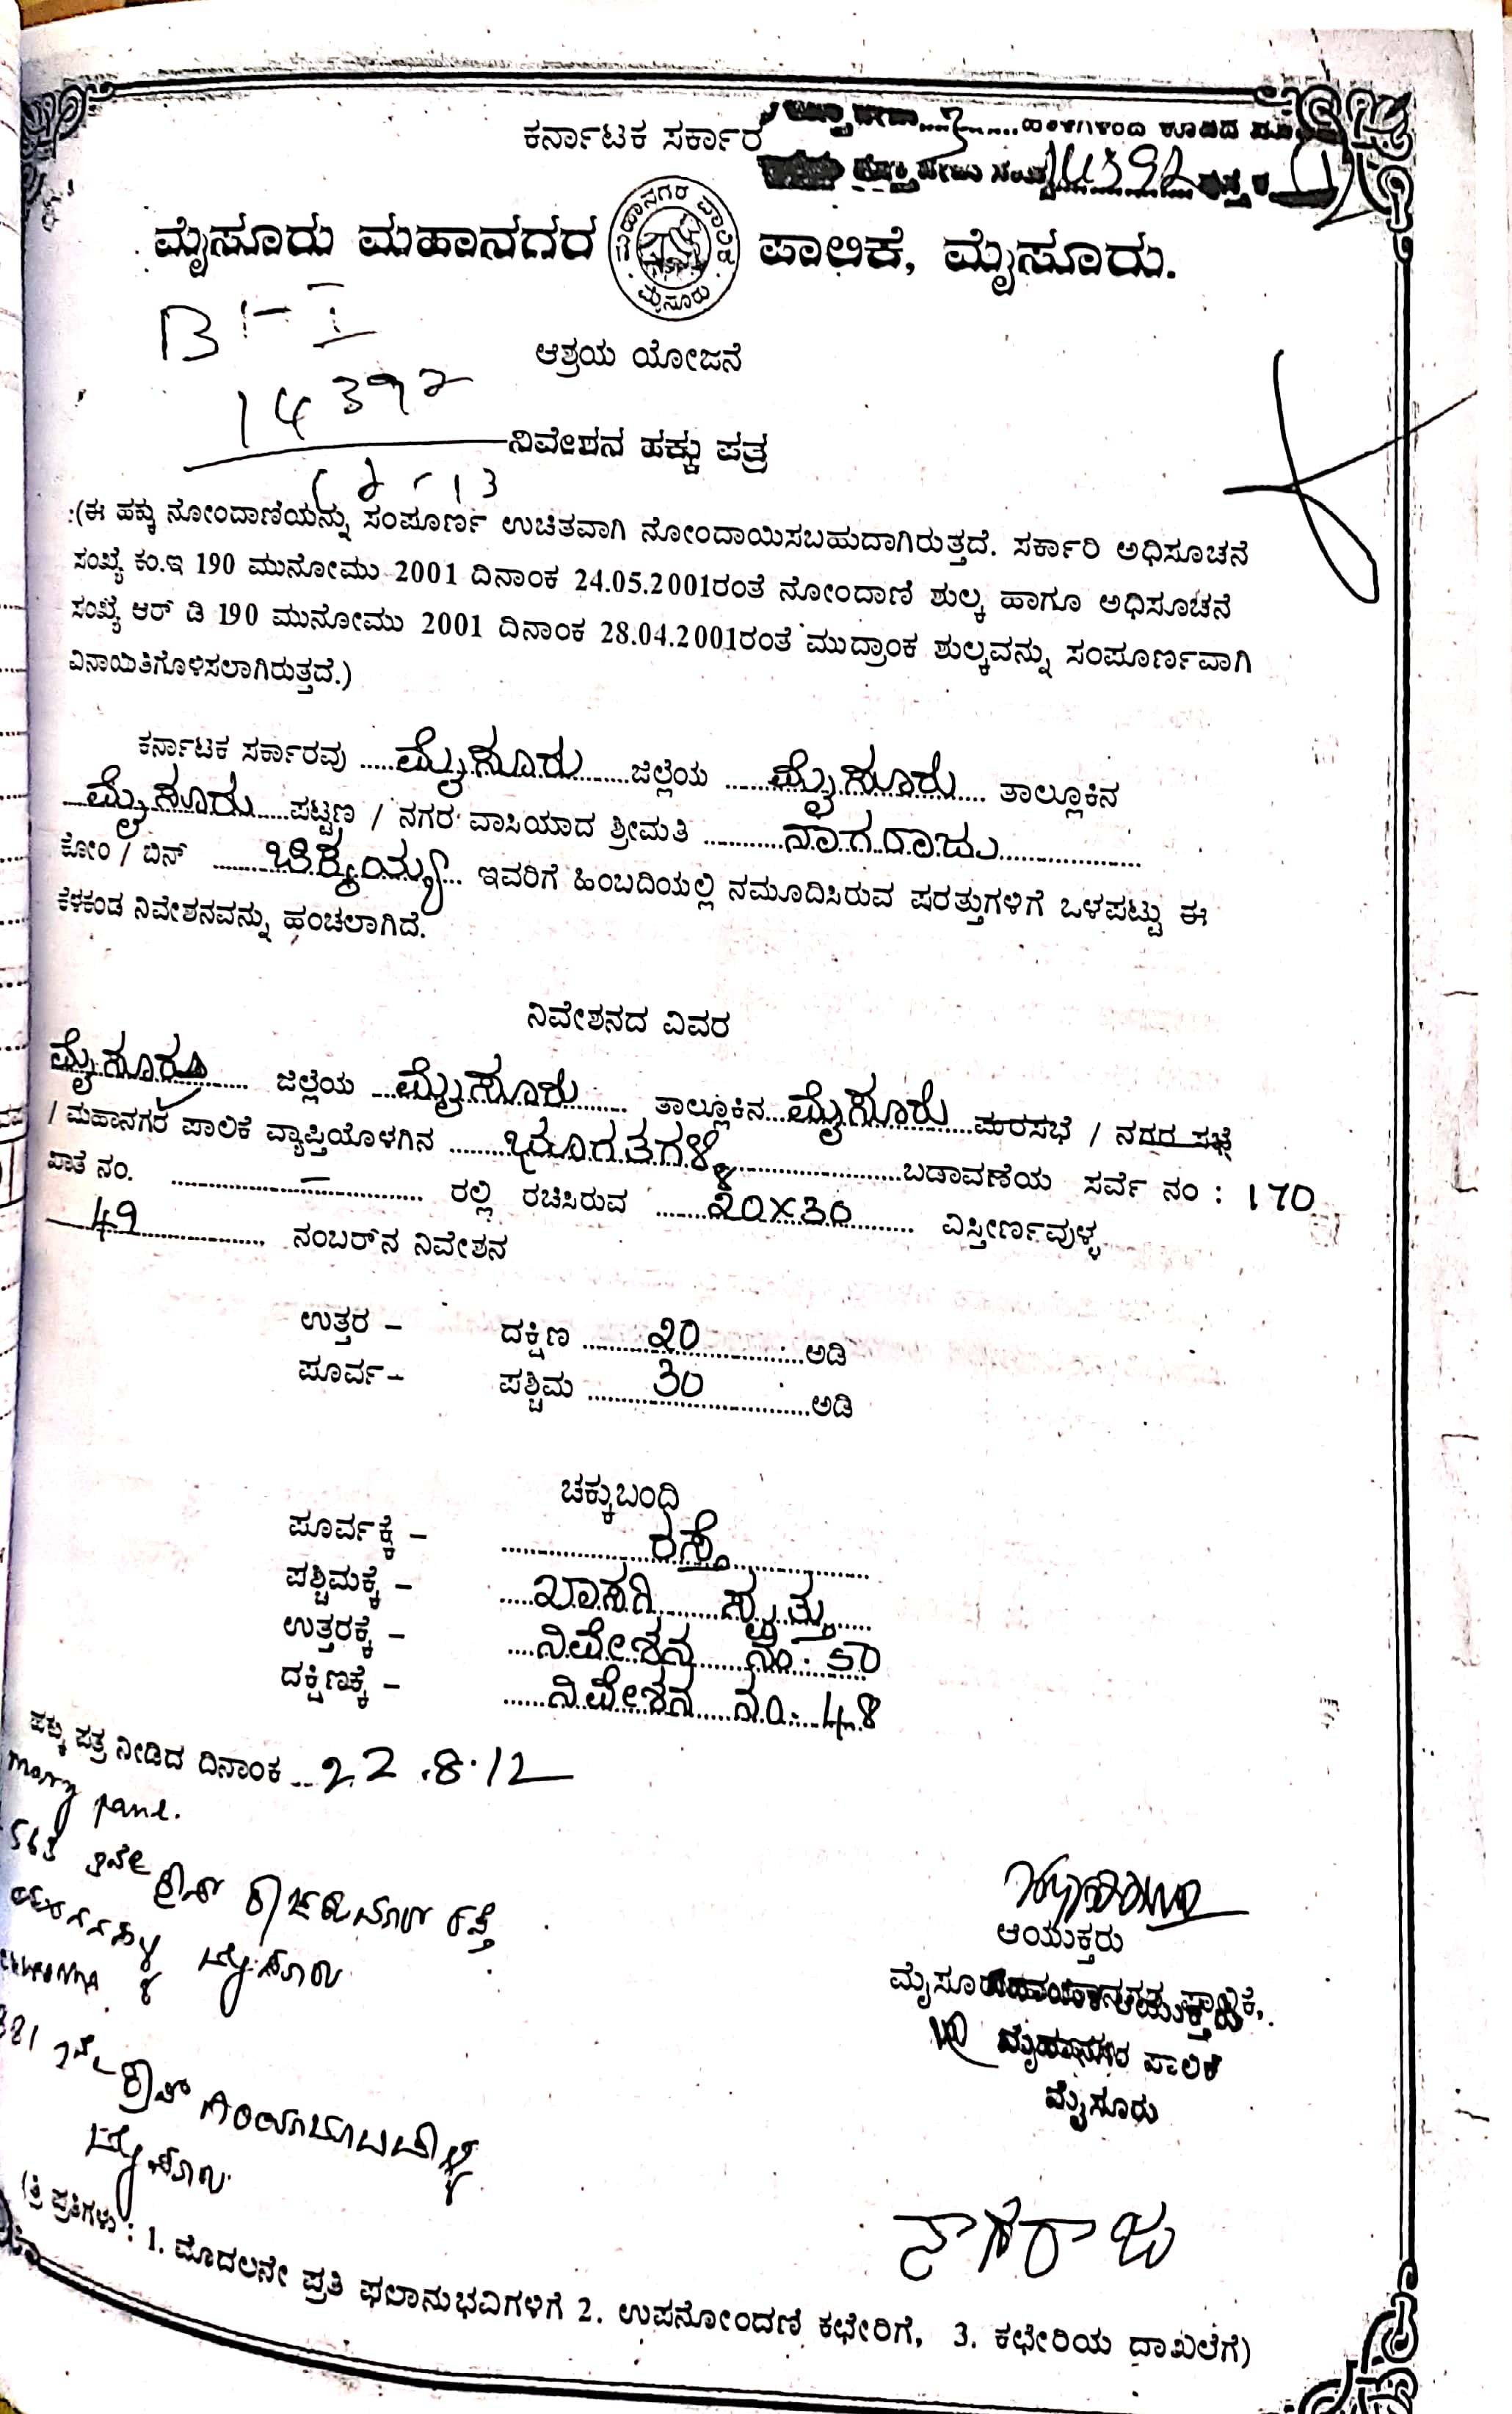 ಕರ್ನಾಟಕ ಸರ್ಕಾರ
3 ಹಾಳೆಗಳಿಂದ ಕೂಡಿದ
14392
ಮೈಸೂರು ಮಹಾನಗರ ಪಾಲಿಕೆ, ಮೈಸೂರು.
ಮಹಾನಗರ ಪಾಲಿಕೆ ಮೈಸೂರು
B-I
ಆಶ್ರಯ ಯೋಜನೆ
14392
ನಿವೇಶನ ಹಕ್ಕು ಪತ್ರ
(ಈ ಹಕ್ಕು ನೋಂದಾಣಿಯನ್ನು ಸಂಪೂರ್ಣ ಉಚಿತವಾಗಿ ನೋಂದಾಯಿಸಬಹುದಾಗಿರುತ್ತದೆ. ಸರ್ಕಾರಿ ಅಧಿಸೂಚನೆ
ಸಂಖ್ಯೆ ಕಂ.ಇ 190 ಮುನೋಮು 2001 ದಿನಾಂಕ 24.05.2001ರಂತೆ ನೋಂದಾಣಿ ಶುಲ್ಕ ಹಾಗೂ ಅಧಿಸೂಚನೆ
ಸಂಖ್ಯೆ ಆರ್ ಡಿ 190 ಮುನೋಮು 2001 ದಿನಾಂಕ 28.04.2001ರಂತೆ ಮುದ್ರಾಂಕ ಶುಲ್ಕವನ್ನು ಸಂಪೂರ್ಣವಾಗಿ
ವಿನಾಯಿತಿಗೊಳಿಸಲಾಗಿರುತ್ತದೆ.)
ಕರ್ನಾಟಕ ಸರ್ಕಾರವು ಮೈಸೂರು ಜಿಲ್ಲೆಯ ಮೈಸೂರು ತಾಲ್ಲೂಕಿನ
ಮೈಸೂರು ಪಟ್ಟಣ / ನಗರ ವಾಸಿಯಾದ ಶ್ರೀಮತಿ ನಾಗರಾಜು
ಕೋಂ / ಬಿನ್ ಚಿಕ್ಕಯ್ಯ ಇವರಿಗೆ ಹಿಂಬದಿಯಲ್ಲಿ ನಮೂದಿಸಿರುವ ಷರತ್ತುಗಳಿಗೆ ಒಳಪಟ್ಟು ಈ
ಕೆಳಕಂಡ ನಿವೇಶನವನ್ನು ಹಂಚಲಾಗಿದೆ.
ನಿವೇಶನದ ವಿವರ
ಮೈಸೂರು ಜಿಲ್ಲೆಯ ಮೈಸೂರು ತಾಲ್ಲೂಕಿನ ಮೈಸೂರು ಪುರಸಭೆ / ನಗರ ಸಭೆ
/ ಮಹಾನಗರ ಪಾಲಿಕೆ ವ್ಯಾಪ್ತಿಯೊಳಗಿನ ಭೂಗತಗಳ್ಳಿ ಬಡಾವಣೆಯ ಸರ್ವೆ ನಂ : 170
ಖಾತೆ ನಂ. - ರಲ್ಲಿ ರಚಿಸಿರುವ 20x30 ವಿಸ್ತೀರ್ಣವುಳ್ಳ
49 ನಂಬರ್‌ನ ನಿವೇಶನ
ಉತ್ತರ - ದಕ್ಷಿಣ 20 ಅಡಿ
ಪೂರ್ವ - ಪಶ್ಚಿಮ 30 ಅಡಿ
ಚಕ್ಕುಬಂಧಿ
ಪೂರ್ವಕ್ಕೆ - ರಸ್ತೆ
ಪಶ್ಚಿಮಕ್ಕೆ - ಖಾಸಗಿ ಸ್ವತ್ತು
ಉತ್ತರಕ್ಕೆ - ನಿವೇಶನ ನಂ. 50
ದಕ್ಷಿಣಕ್ಕೆ - ನಿವೇಶನ ನಂ. 48
ಹಕ್ಕು ಪತ್ರ ನೀಡಿದ ದಿನಾಂಕ 22.8.12
ಆಯುಕ್ತರು
ಮೈಸೂರು ಮಹಾನಗರ ಪಾಲಿಕೆ,
ಮಹಾನಗರ ಪಾಲಿಕೆ
ಮೈಸೂರು
ನಾಗರಾಜು
(ತ್ರಿ ಪ್ರತಿಗಳು : 1. ಮೊದಲನೇ ಪ್ರತಿ ಫಲಾನುಭವಿಗಳಿಗೆ 2. ಉಪನೋಂದಣಿ ಕಛೇರಿಗೆ, 3. ಕಛೇರಿಯ ದಾಖಲೆಗೆ)